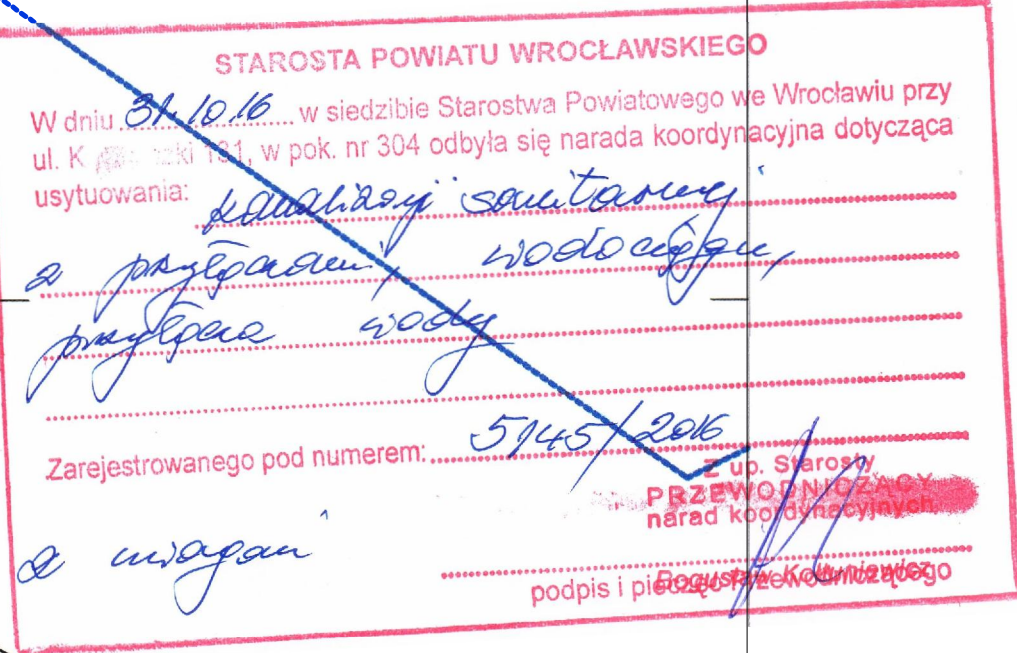 STAROSTA POWIATU WROCŁAWSKIEGO
W dniu 31.10.16 w siedzibie Starostwa Powiatowego we Wrocławiu przy
ul. K 131, w pok. nr 304 odbyła się narada koordynacyjna dotycząca
usytuowania: kanalizacji sanitarnej
z przyłączami, wodociągu,
przyłącza wody
Zarejestrowanego pod numerem: 5145/2016
Z up. Starosty
PRZEWODNICZĄCY
narad koordynacyjnych
Bogusław
podpis i pieczęć Przewodniczącego